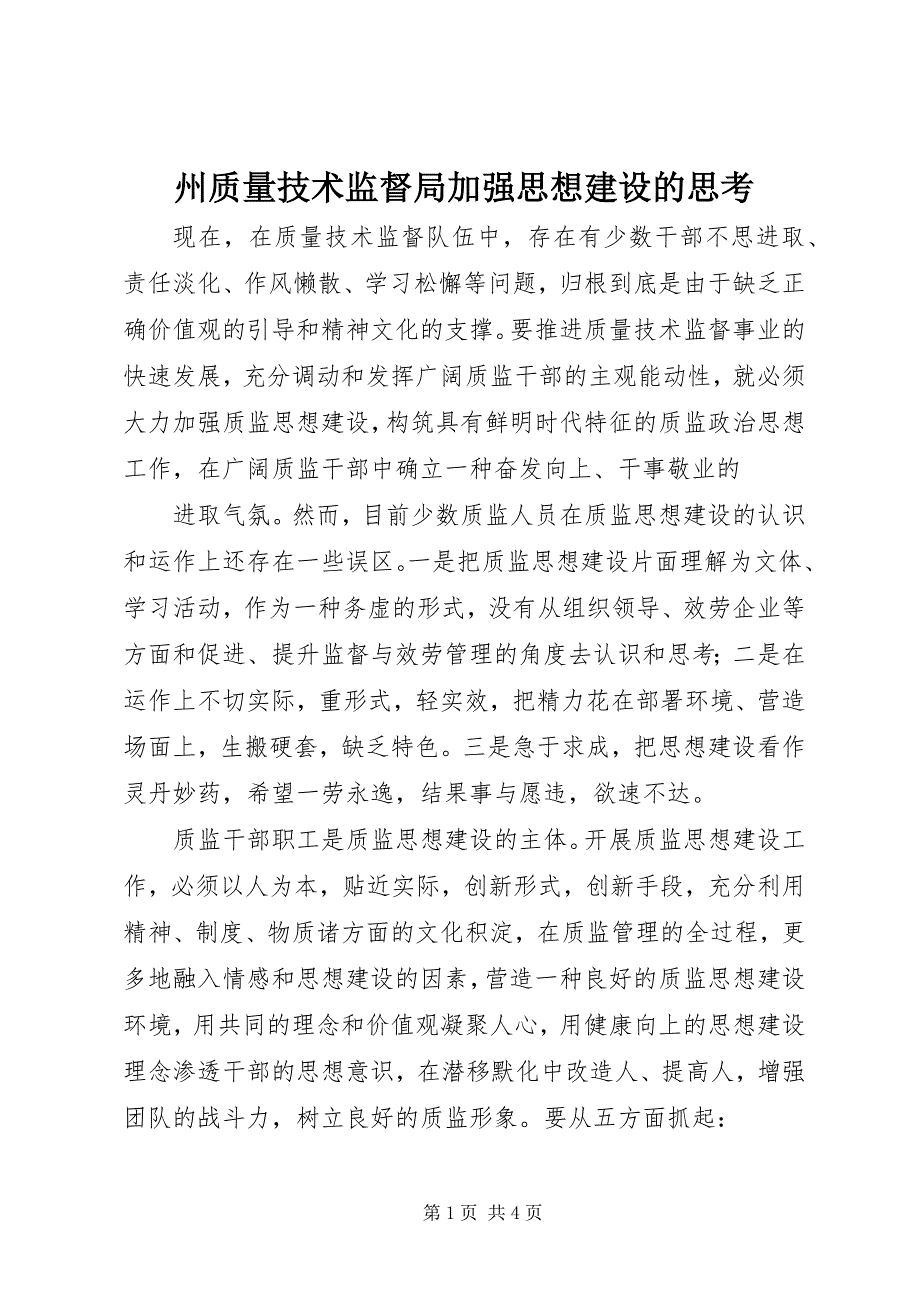 州质量技术监督局加强思想建设的思考
现在，在质量技术监督队伍中，存在有少数干部不思进取、
责任淡化、作风懒散、学习松懈等问题，归根到底是由于缺乏正
确价值观的引导和精神文化的支撑。要推进质量技术监督事业的
快速发展，充分调动和发挥广阔质监干部的主观能动性，就必须
大力加强质监思想建设，构筑具有鲜明时代特征的质监政治思想
工作，在广阔质监干部中确立一种奋发向上、干事敬业的
进取气氛。然而，目前少数质监人员在质监思想建设的认识
和运作上还存在一些误区。一是把质监思想建设片面理解为文体、
学习活动，作为一种务虚的形式，没有从组织领导、效劳企业等
方面和促进、提升监督与效劳管理的角度去认识和思考；二是在
运作上不切实际，重形式，轻实效，把精力花在部署环境、营造
场面上，生搬硬套，缺乏特色。三是急于求成，把思想建设看作
灵丹妙药，希望一劳永逸，结果事与愿违，欲速不达。
质监干部职工是质监思想建设的主体。开展质监思想建设工
作，必须以人为本，贴近实际，创新形式，创新手段，充分利用
精神、制度、物质诸方面的文化积淀，在质监管理的全过程，更
多地融入情感和思想建设的因素，营造一种良好的质监思想建设
环境，用共同的理念和价值观凝聚人心，用健康向上的思想建设
理念渗透干部的思想意识，在潜移默化中改造人、提高人，增强
团队的战斗力，树立良好的质监形象。要从五方面抓起：
第 1 页 共 4 页